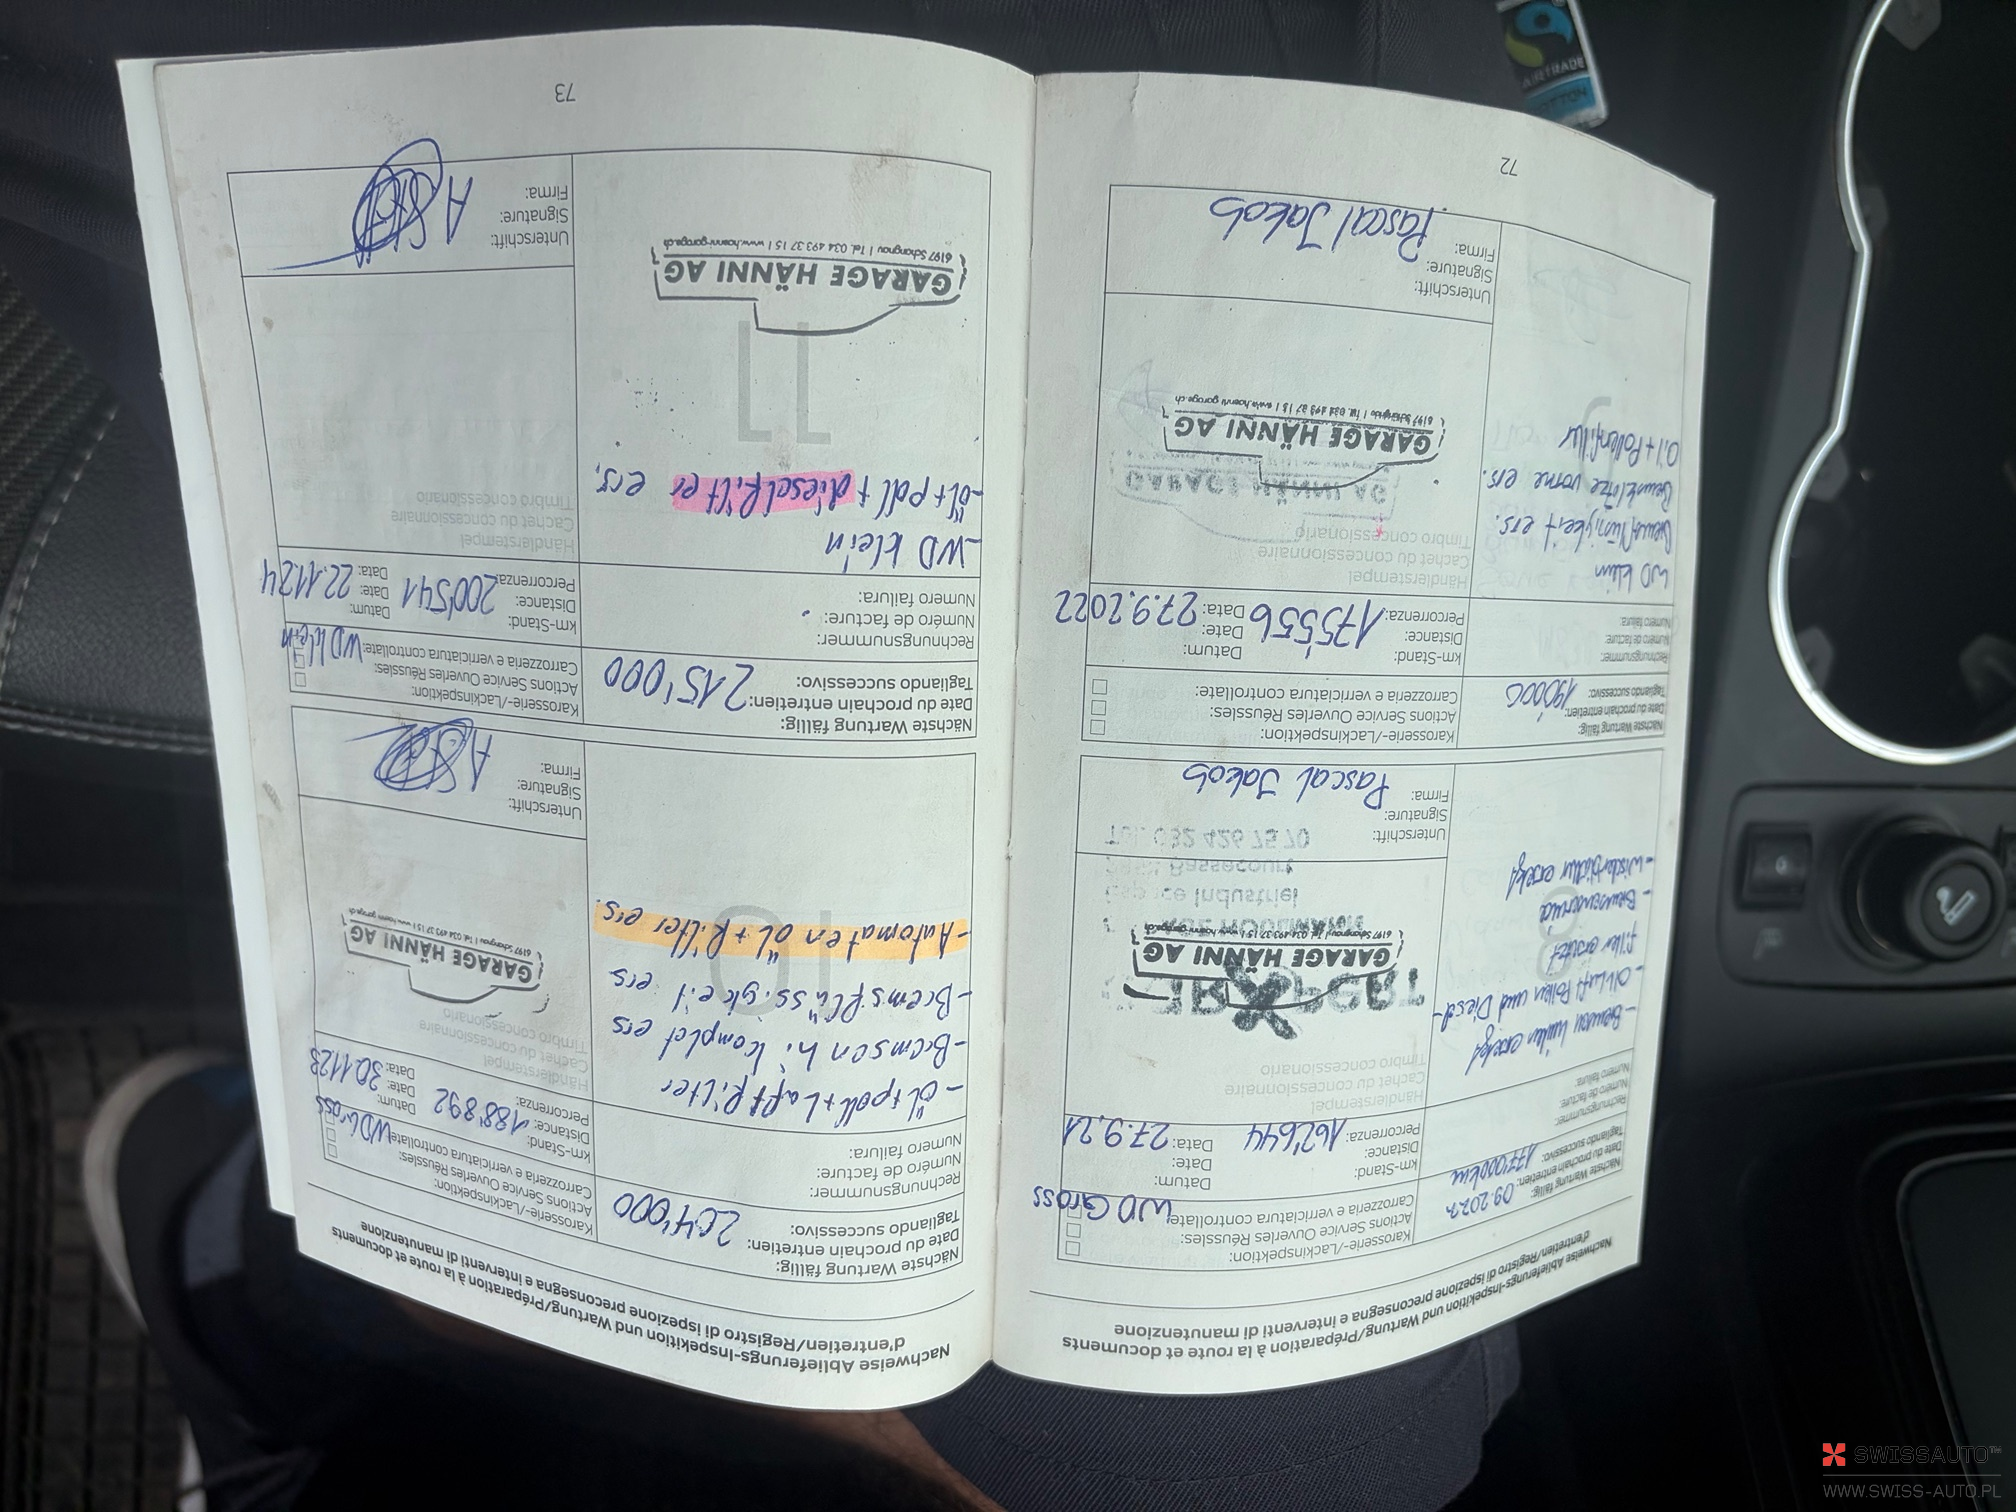 Nachweise Ablieferungs-Inspekition und Wartung/Préparation à la route et documents
d'entretien/Registro di ispezione preconsegna e interventi di manutenzione
Nächste Wartung fällig:
Date du prochain entretien:
Tagliando successivo:
177'000km
Rechnungsnummer:
Numéro de facture:
Numero failura:
- Bremsen hinten ersetzt
- Öl Luft Pollen und Diesel-
filter ersetzt
- Bremsenservice
- Wischerblätter ersetzt
8
Karosserie-/Lackinspektion:
Actions Service Ouverles Réussles:
Carrozzeria e verriciatura controllate:
WD Gross
km-Stand:
Distance:
Percorrenza:
162'644
Datum:
Date:
Data:
27.9.21
Händlerstempel
Cachet du concessionnaire
Timbro concessionario
GARAGE HÄNNI AG
6197 Schangnau | Tel. 034 493 37 15 | www.haenni-garage.ch
Espace Industriel
Bassecourt
Tél. 032 426 75 70
Unterschift:
Signature:
Firma:
Pascal Jakob
Nächste Wartung fällig:
Date du prochain entretien:
Tagliando successivo:
190'000
Rechnungsnummer:
Numéro de facture:
Numero failura:
WD klein
Bremsflüssigkeit ers.
Bremsklötze vorne ers.
Öl + Pollenfilter
9
Karosserie-/Lackinspektion:
Actions Service Ouverles Réussles:
Carrozzeria e verriciatura controllate:
km-Stand:
Distance:
Percorrenza:
175'556
Datum:
Date:
Data:
27.9.2022
Händlerstempel
Cachet du concessionnaire
Timbro concessionario
GARAGE HÄNNI AG
GARAGE HÄNNI AG
6197 Schangnau | Tel. 034 493 37 15 | www.haenni-garage.ch
Unterschift:
Signature:
Firma:
Pascal Jakob
72
Nachweise Ablieferungs-Inspekition und Wartung/Préparation à la route et documents
d'entretien/Registro di ispezione preconsegna e interventi di manutenzione
Nächste Wartung fällig:
Date du prochain entretien:
Tagliando successivo:
204'000
Rechnungsnummer:
Numéro de facture:
Numero failura:
- Öl + poll + Luftfilter
- Bremsen hi komplet ers
- Bremsflüssigkeit ers
- Automaten öl + filter ers.
10
Karosserie-/Lackinspektion:
Actions Service Ouverles Réussles:
Carrozzeria e verriciatura controllate:
WD Gross
km-Stand:
Distance:
Percorrenza:
188'892
Datum:
Date:
Data:
30.11.23
Händlerstempel
Cachet du concessionnaire
Timbro concessionario
GARAGE HÄNNI AG
6197 Schangnau | Tel. 034 493 37 15 | www.haenni-garage.ch
Unterschift:
Signature:
Firma:
Nächste Wartung fällig:
Date du prochain entretien:
Tagliando successivo:
215'000
Rechnungsnummer:
Numéro de facture:
Numero failura:
- WD klein
- öl + poll + dieselfilter ers.
11
GARAGE HÄNNI AG
6197 Schangnau | Tel. 034 493 37 15 | www.haenni-garage.ch
Karosserie-/Lackinspektion:
Actions Service Ouverles Réussles:
Carrozzeria e verriciatura controllate:
WD klein
km-Stand:
Distance:
Percorrenza:
200'541
Datum:
Date:
Data:
22.11.24
Händlerstempel
Cachet du concessionnaire
Timbro concessionario
Unterschift:
Signature:
Firma:
73
SWISSAUTO™
WWW.SWISS-AUTO.PL